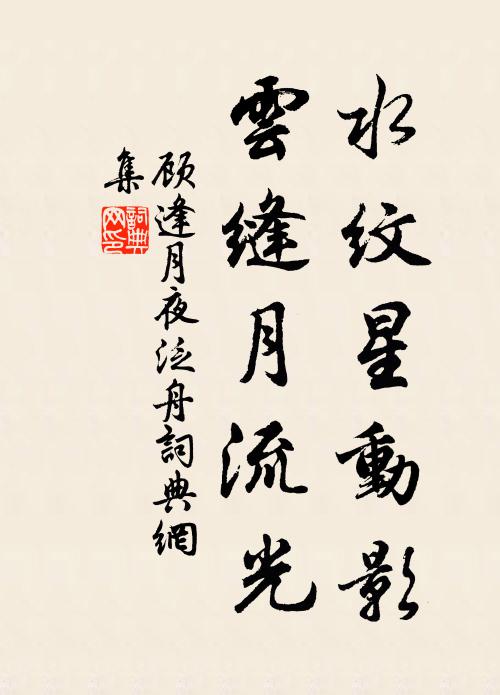 水紋星動影
雲縫月流光
顾逢月夜泛舟詞典網
集
詞典
网印